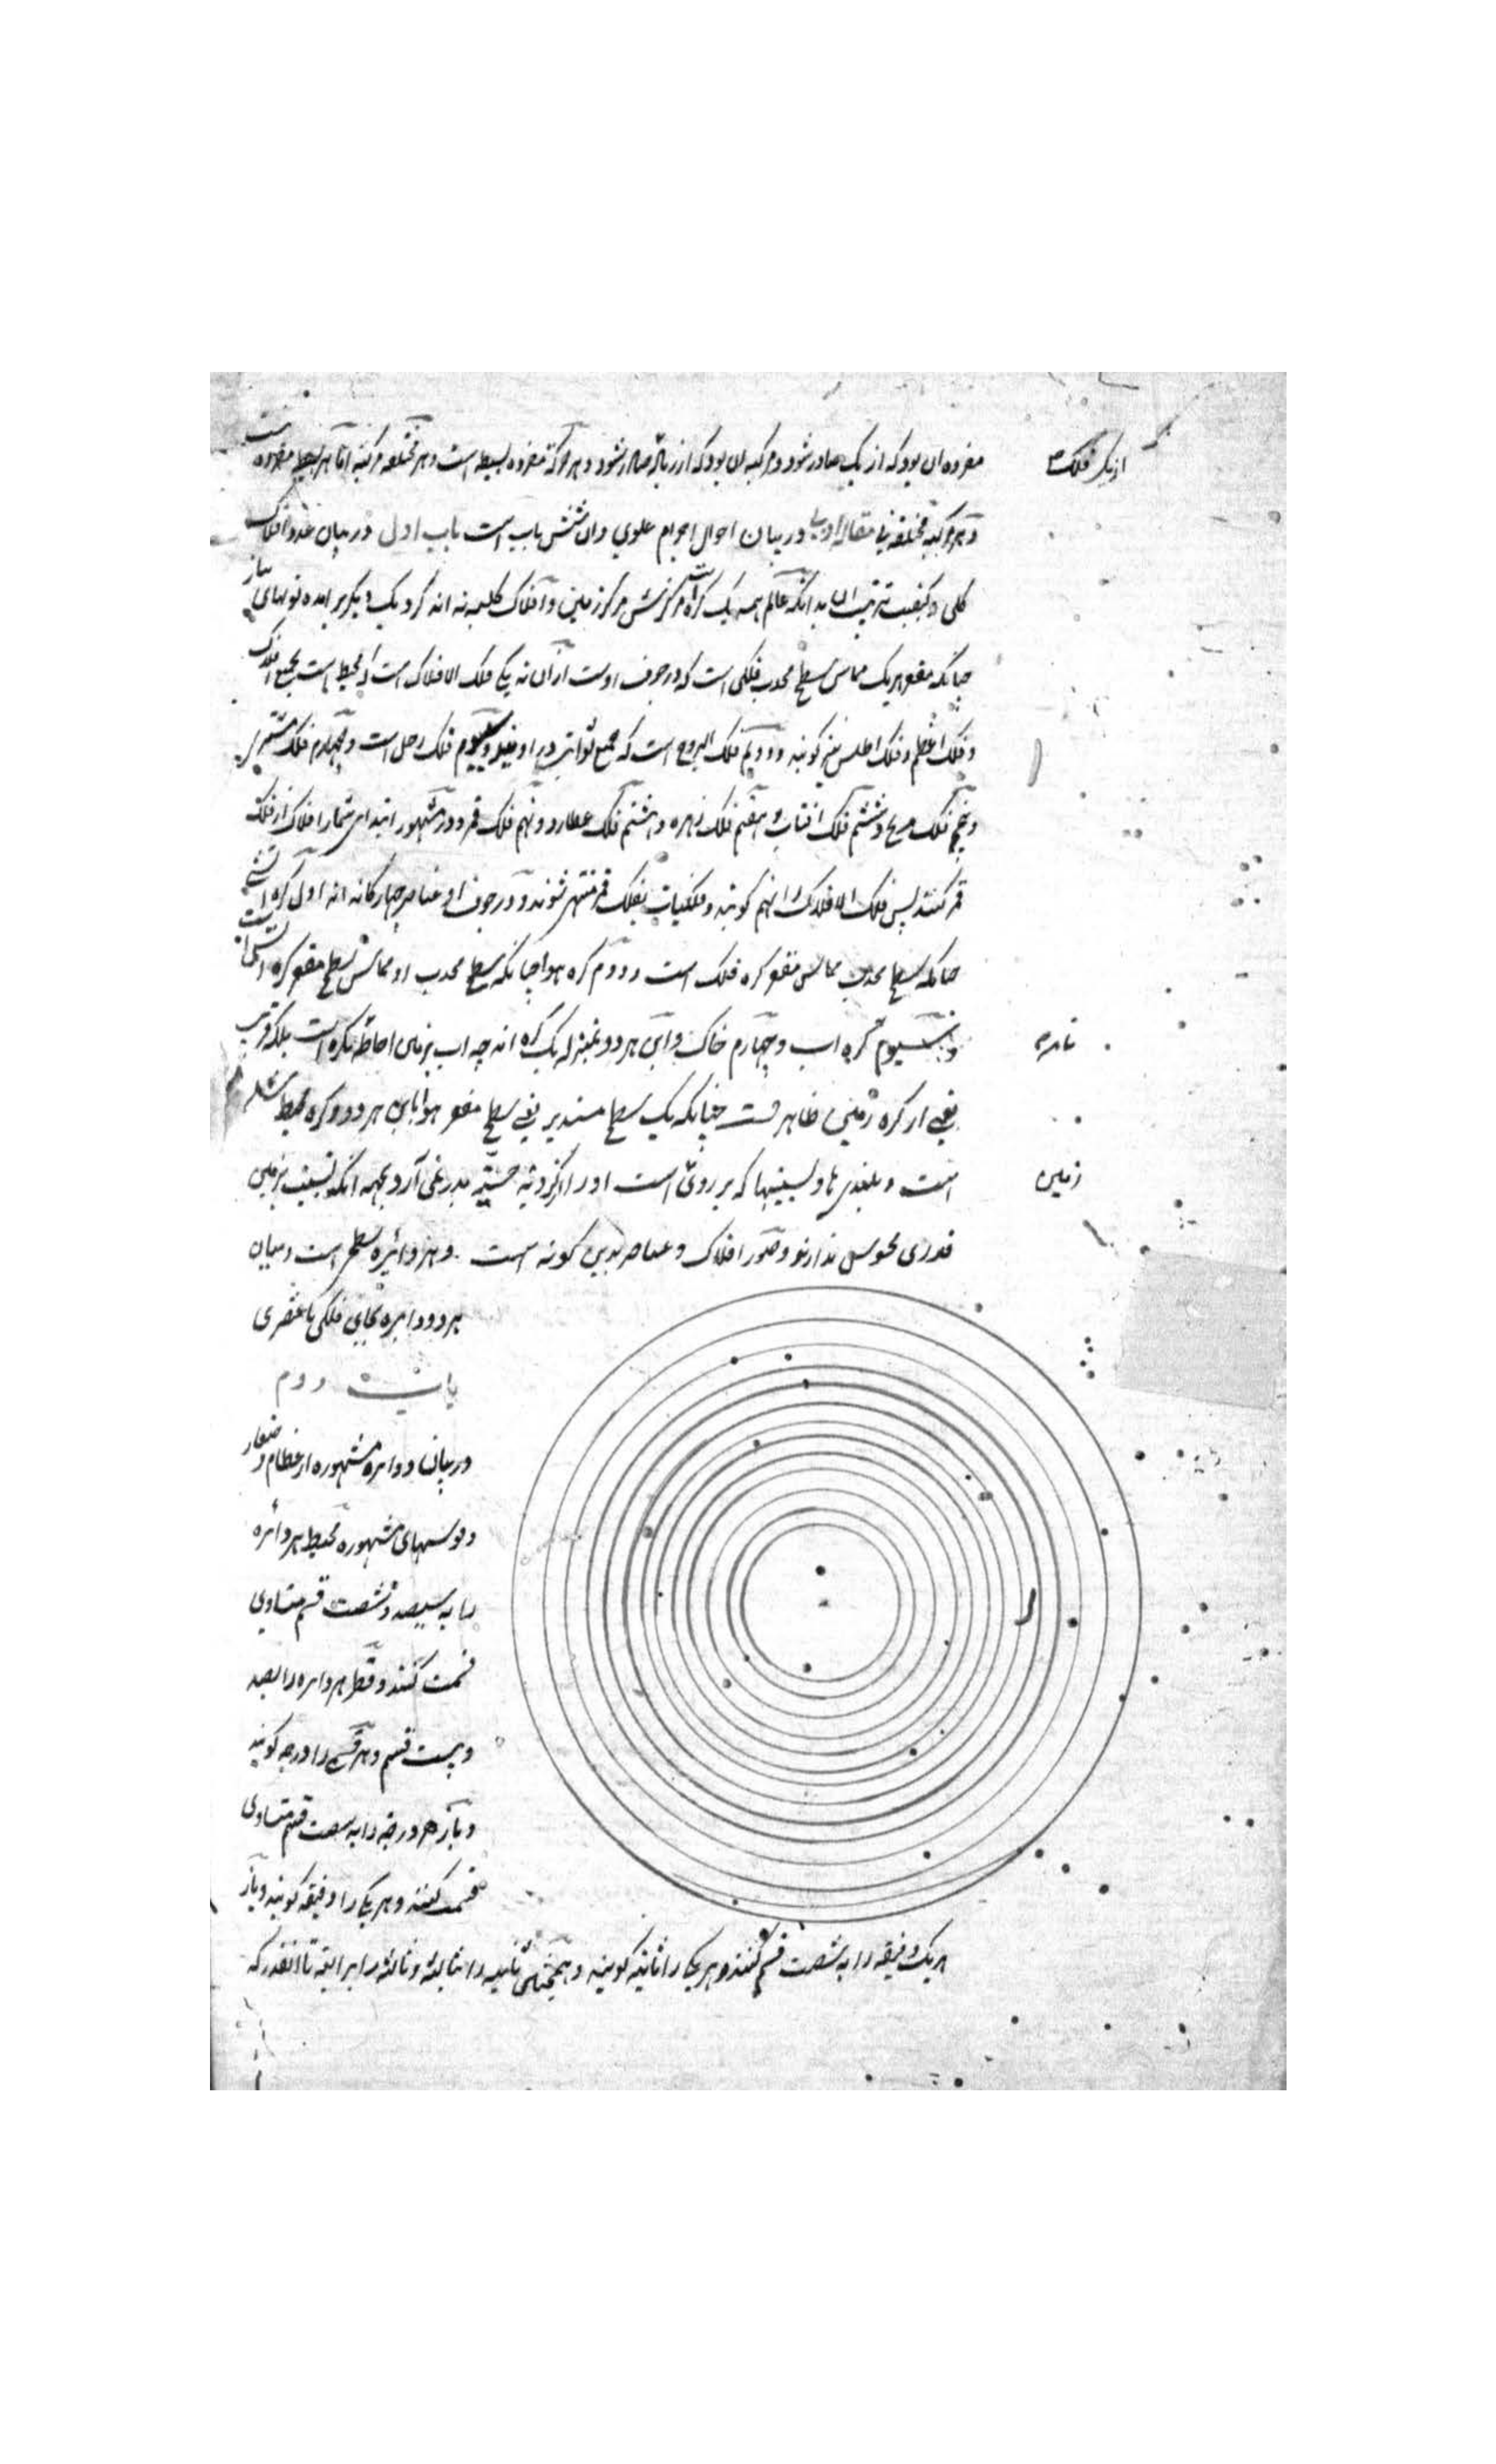 از یک فلک
مفرده آن بود که از یک صادر شود و مرکبه آن بود که از زیاده صادر شود و هر حرکة مفرده بسیطه است و هر مختلفه مرکبه اما هر بسیطه مفرده نیست
و هر مرکبه مختلفه نی مقاله اولی در بیان احوال اجرام علوی و آن شش باب است باب اول در بیان عدد افلاک
کلی و کیفیت ترتیب آن بدانکه عالم همه یک کره است مرکزش مرکز زمین و افلاک کلیه نه اند گرد یک دیگر بر آمده تویهای پیاز
چنانکه مقعر هر یک مماس سطح محدب فلکی است که در جوف اوست از آن نه یکی فلک الافلاک است که محیط است بجمیع افلاک
و فلک اعظم و فلک اطلس نیز کویند و دویم فلک البروج است که جمیع ثوابت در او و سیوم فلک زحل است و چهارم فلک مشتری
و پنجم فلک مریخ و ششم فلک آفتاب و هفتم فلک زهره و هشتم فلک عطارد و نهم فلک قمر و در مشهور ابتدای شمار افلاک از فلک
قمر کنند پس فلک الافلاک را نهم کویند و فلکیات بفلک قمر منتهی شوند و در جوف او عناصر چهار کانه اند اول کره آتش
چنانکه سطح محدب مماس مقعر کره فلک است و دوم کره هوا چنانکه سطح محدب او مماس سطح مقعر کره آتش است
تمام
و سیوم کره آب و چهارم خاک و این هر دو بمنزله یک کره اند چه آب بزمین احاطه نکرده است بلکه قریب
ربعی از کره زمین ظاهر است چنانکه یک سطح مستدیر یعنی سطح مقعر هوا باین هر دو کره محیط شده
زمین
است و بلندی ها و پستیها که بر روی است او را از کرویة حسیه بدر نمی آرد بجهه آنکه نسبت بزمین
قدری محسوس ندارند و صور افلاک و عناصر بدین کونه است و هر دائره سطحی است و میان
هر دو دائره بجای فلکی یا عنصری
باب دوم
در بیان دوائر مشهوره از عظام و صغار
و قوسهای مشهوره محیط هر دائره
را به سیصد و شصت قسم متساوی
قسمت کنند و قطر هر دائره را بصد
و بیست قسم و هر قسمی را درجه کویند
و باز هر درجه را به شصت قسم متساوی
قسمت کنند و هر یکی را دقیقه کویند و باز
هر یک دقیقه را به شصت قسم کنند و هر یکی را ثانیه کویند و همچنین ثانیه را ثالثه و ثالثه را رابعه تا آنقدر که